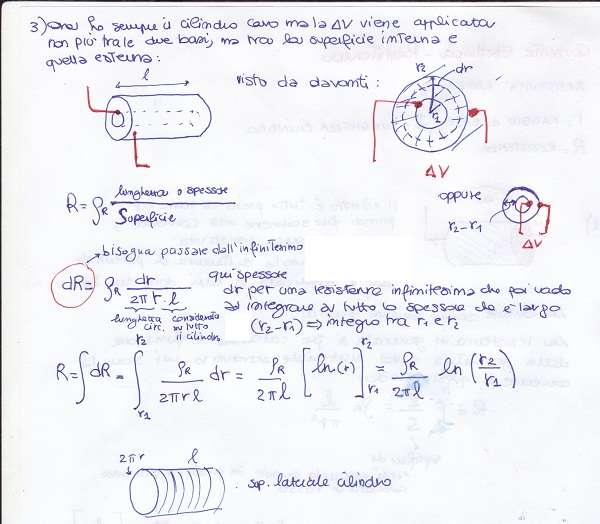 3) Ora ho sempre il cilindro cavo ma la ΔV viene applicata
non più tra le due basi, ma tra la superficie interna e
quella esterna:
l
visto da davanti:
r2
dr
r1
ΔV
R = ρR lunghezza o spessore / Superficie
oppure
r2-r1
ΔV
bisogna passare dall'infinitesimo
dR = ρR dr / 2π r · l
lunghezza circ.
considerata su tutto il cilindro
qui spessore
dr per una resistenza infinitesima che poi vado
ad integrare su tutto lo spessore che è largo
(r2-r1) ⇒ integro tra r1 e r2
R = ∫dR = ∫ r1 r2 ρR / 2π r l dr = ρR / 2π l [ln(r)] r1 r2 = ρR / 2π l ln (r2 / r1)
2π r
l
sup. laterale cilindro